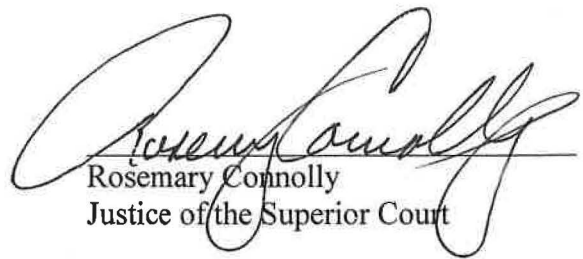 Rosemary Connolly
Rosemary Connolly
Justice of the Superior Court